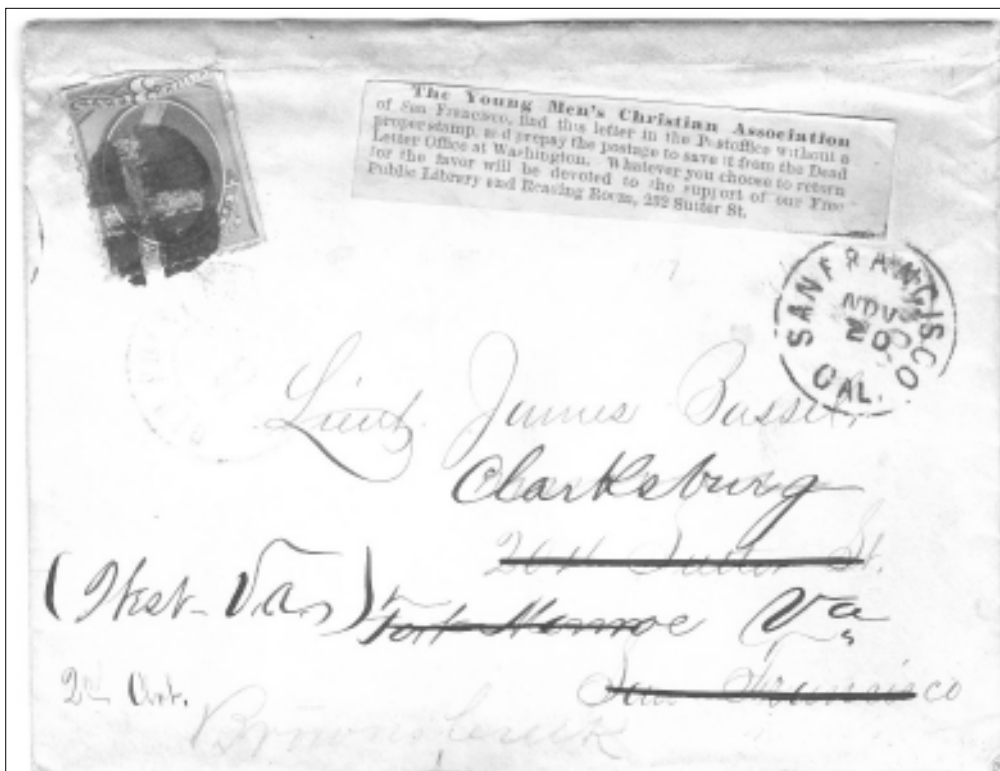 The Young Men's Christian Association
of San Francisco, find this letter in the Postoffice without a
proper stamp, and prepay the postage to save it from the Dead
Letter Office at Washington. Whatever you choose to return
for the favor will be devoted to the support of our Free
Public Library and Reading Room, 232 Sutter St.
SAN FRANCISCO
NOV
20
CAL.
Lieut. James
Clarksburg
204 Sutter St.
(West Va) Fort Monroe Va
San Francisco
2nd Art.